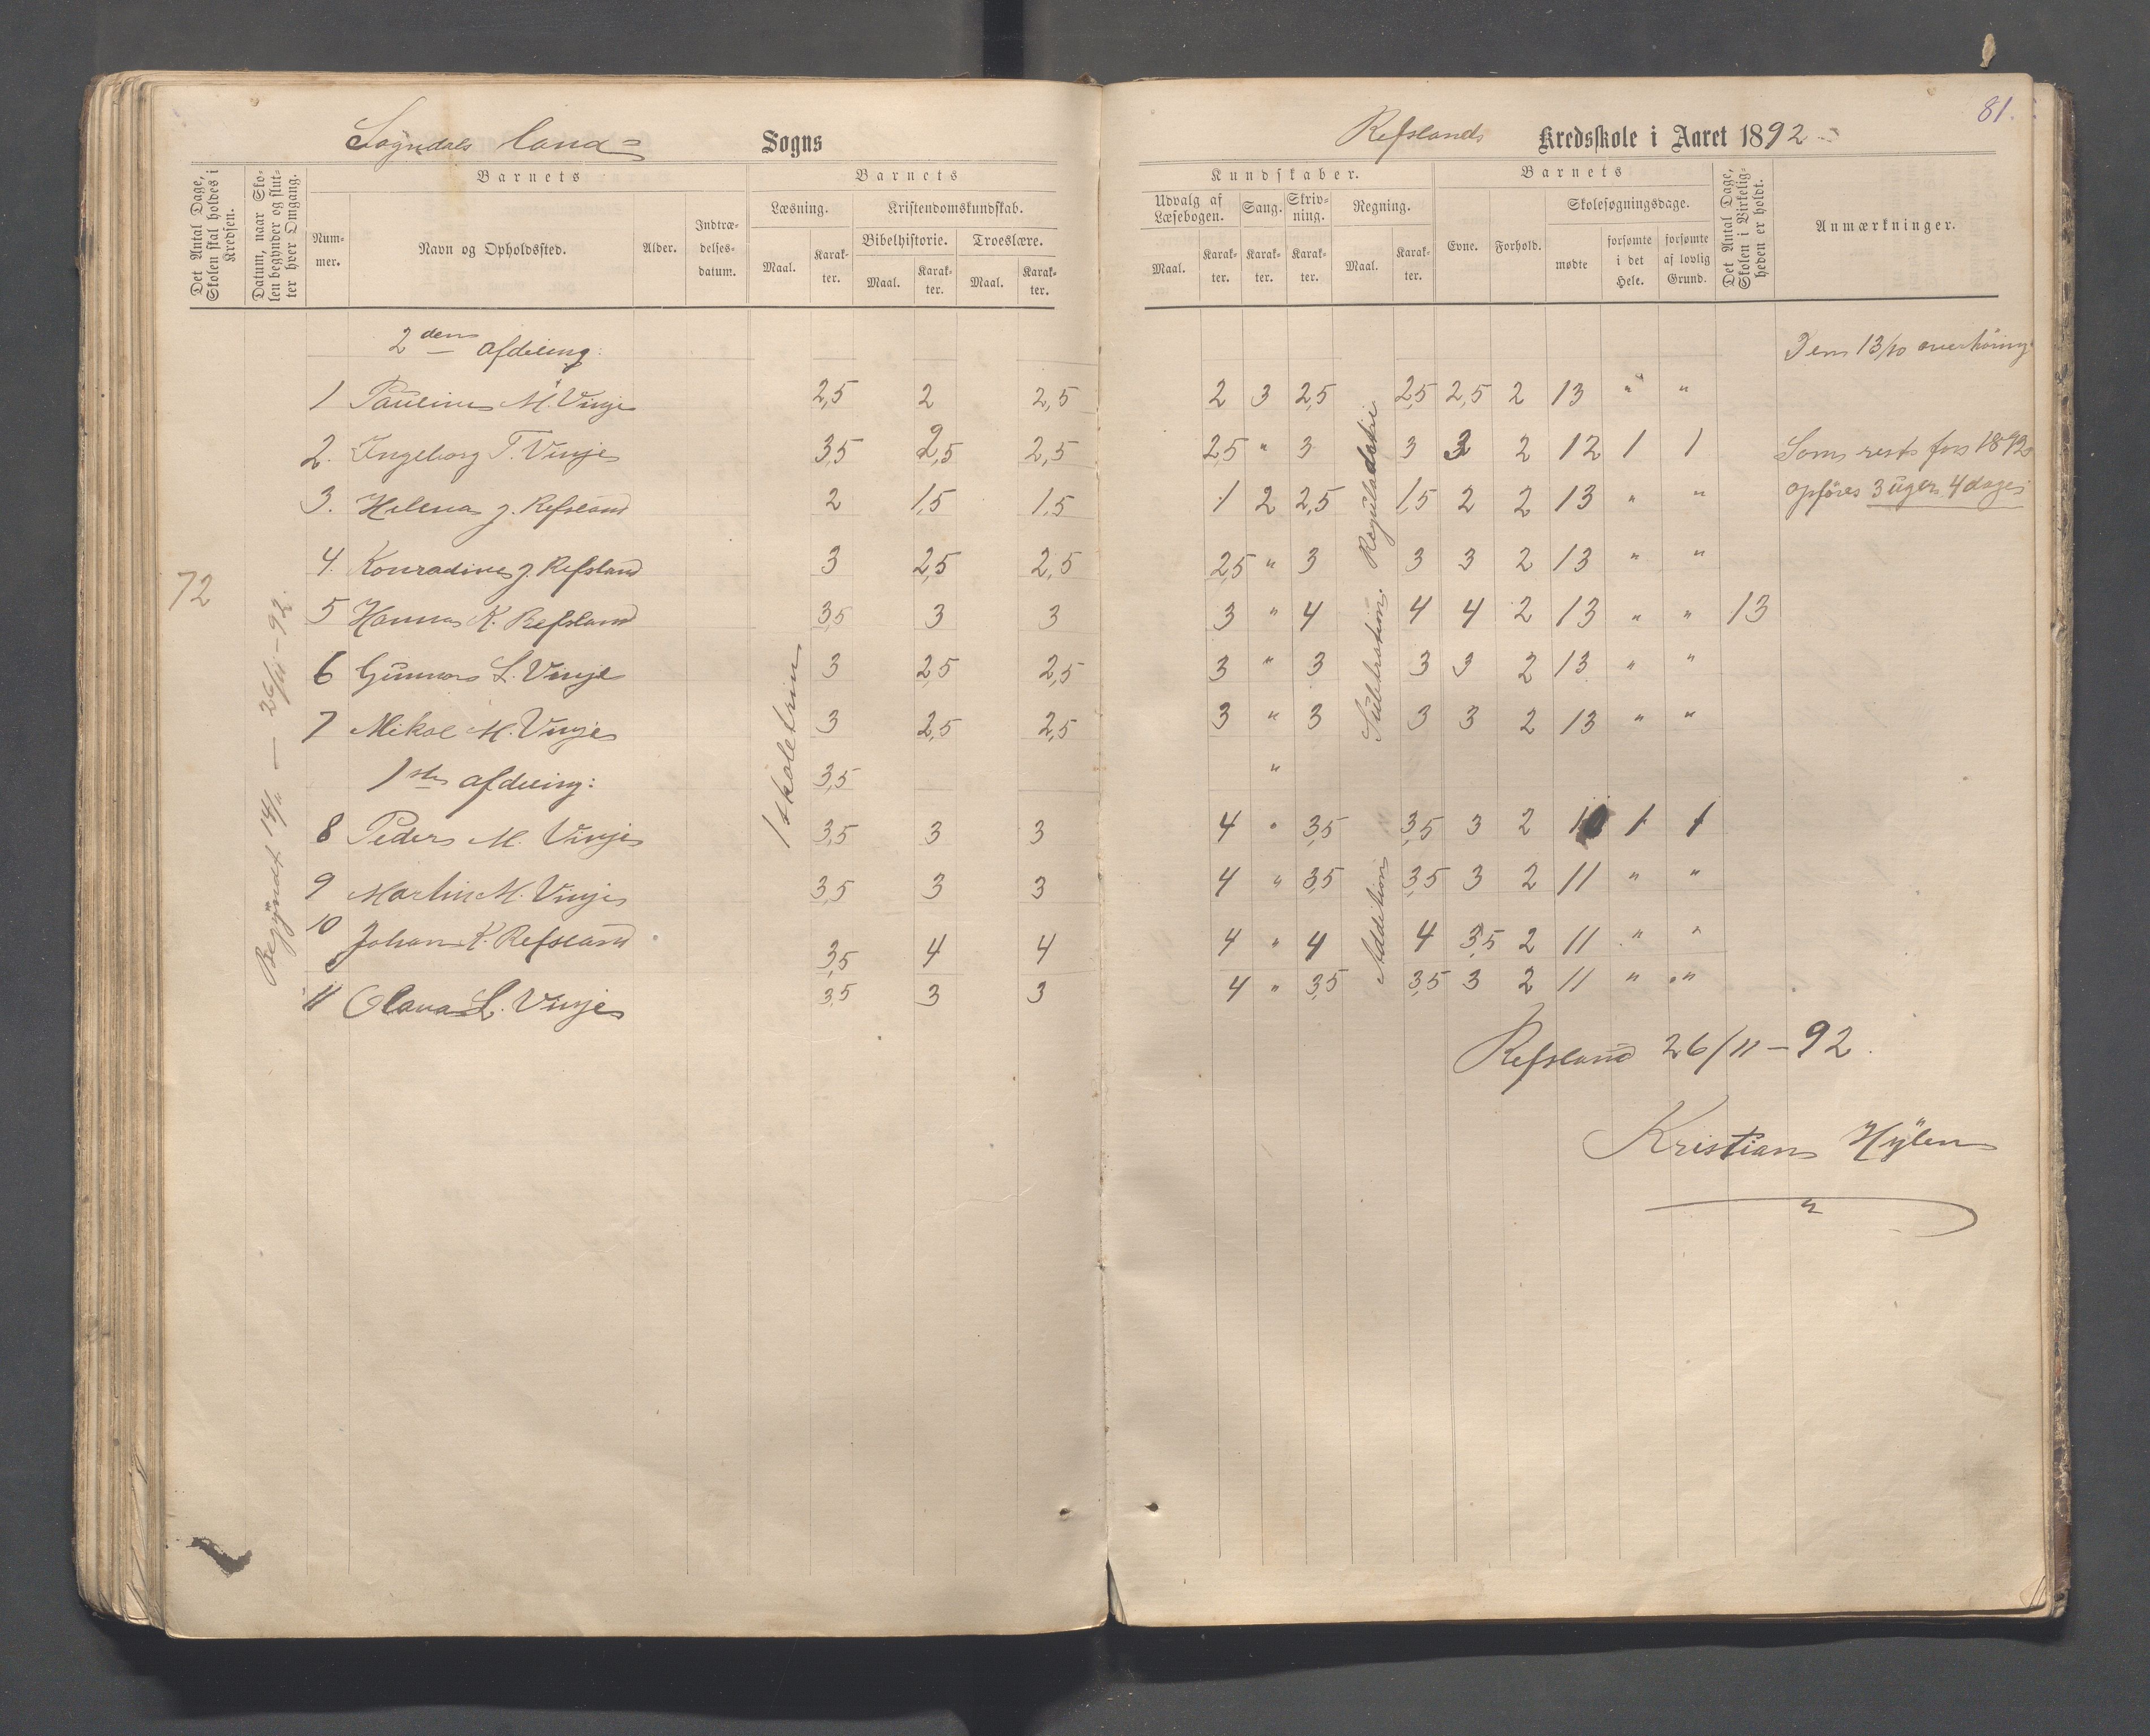 81.
Sogndals land= Sogns
Refslands Kredsskole i Aaret 1892
Det Antal Dage, Skolen skal holdes i Kredsen.
Datum, naar Skolen begynder og slutter hver Omgang.
Barnets
Nummer.
Navn og Opholdssted.
Alder.
Indtrædelsesdatum.
Barnets
Læsning.
Maal.
Karakter.
Kristendomskundskab.
Bibelhistorie.
Maal.
Karakter.
Troeslære.
Maal.
Karakter.
Kundskaber.
Udvalg af Læsebogen.
Maal.
Karakter.
Sang.
Karakter.
Skrivning.
Karakter.
Regning.
Maal.
Karakter.
Barnets
Evne.
Forhold.
Skolesøgningsdage.
mødte
forsømte i det Hele.
forsømte af lovlig Grund.
Det Antal Dage, Skolen i Virkeligheden er holdt.
Anmærkninger.
2den afdeling: Den 13/10 overhøring
1 Pauline M. Vinje 2,5 2 2,5 2 3 2,5 2,5 2,5 2 13 " "
2. Ingeborg T. Vinje 3,5 2,5 2,5 2,5 " 3 3 3 2 12 1 1 Som rest for 1892
3. Helena J. Refsland 2 1,5 1,5 1 2 2,5 1,5 2 2 13 " " opføres 3 uger 4 dage
4. Konradine J. Refsland 3 2,5 2,5 2,5 " 3 3 3 2 13 " "
72
5 Hanna K. Refsland 3,5 3 3 3 " 4 4 4 2 13 " " 13
6 Gunnar L. Vinje 3 2,5 2,5 3 " 3 3 3 2 13 " "
7 Mikal M. Vinje 3 2,5 2,5 3 " 3 3 3 2 13 " "
1ste afdeling: 3,5 "
8 Peder M. Vinje 3,5 3 3 4 " 3,5 3,5 3 2 10 1 1
9 Martin M. Vinje 3,5 3 3 4 " 3,5 3,5 3 2 11 " "
10 Johan K. Refsland 3,5 4 4 4 " 4 4 3,5 2 11 " "
11 Olava L. Vinje 3,5 3 3 4 " 3,5 3,5 3 2 11 " "
Begyndt 14/11 — 26/11 - 92.
1 skoletrin
Subtraktion. Reguladetri
Addition
Refsland 26/11 - 92.
Kristian Hylen